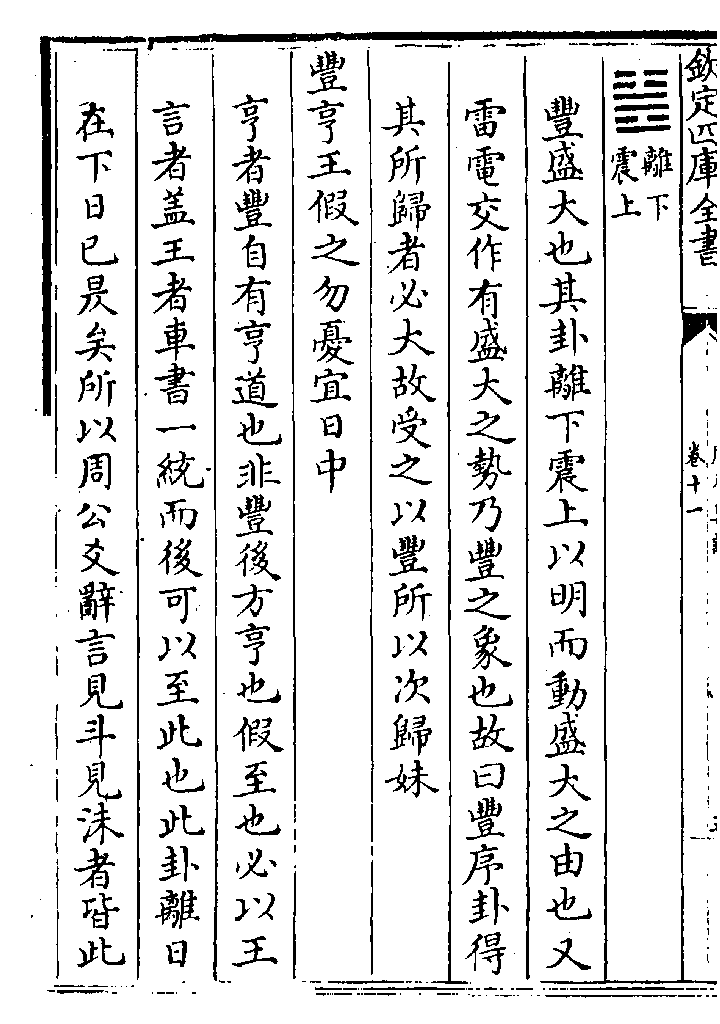 欽定四庫全書
卷十一
離下
震上
豐盛大也其卦離下震上以明而動盛大之由也又
雷電交作有盛大之勢乃豐之象也故曰豐序卦得
其所歸者必大故受之以豐所以次歸妹
豐亨王假之勿憂宜日中
亨者豐自有亨道也非豐後方亨也假至也必以王
言者盖王者車書一統而後可以至此也此卦離日
在下日已昃矣所以周公爻辭言見斗見沬者皆此